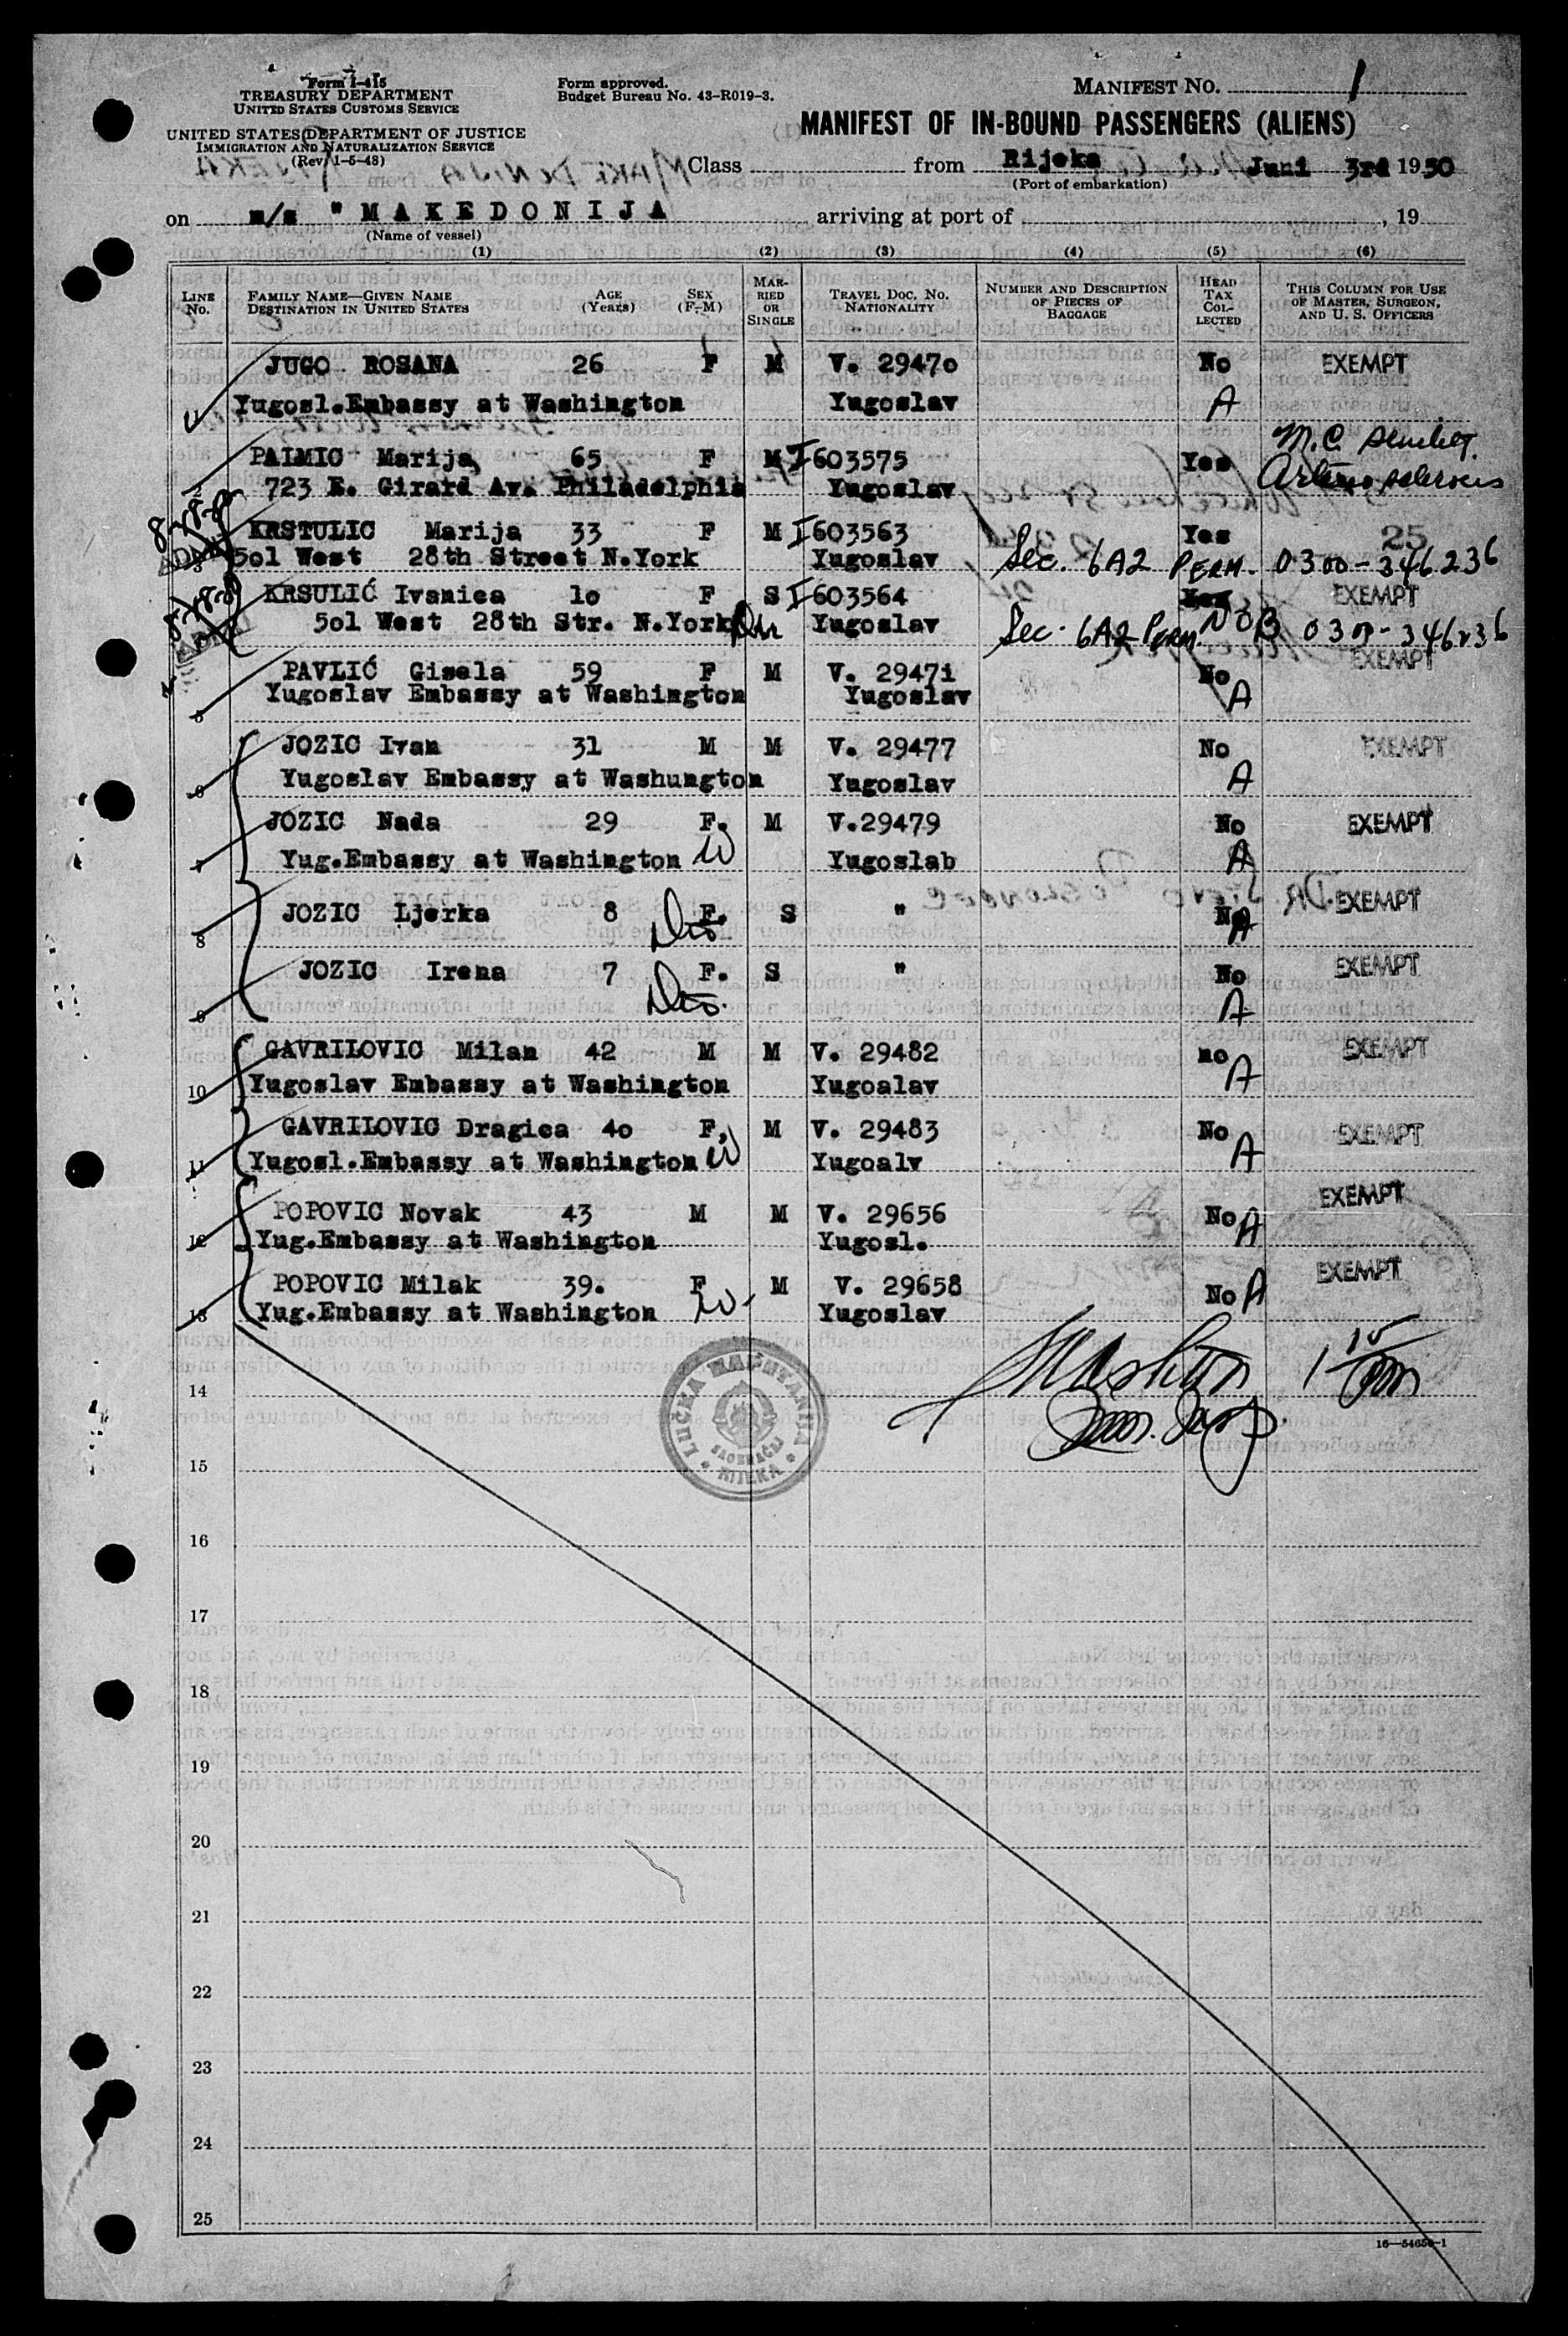 Form I-415
TREASURY DEPARTMENT
UNITED STATES CUSTOMS SERVICE
UNITED STATES DEPARTMENT OF JUSTICE
IMMIGRATION AND NATURALIZATION SERVICE
(Rev. 1-5-48)
Form approved.
Budget Bureau No. 43-R019-3.
MANIFEST NO. 1
MANIFEST OF IN-BOUND PASSENGERS (ALIENS)
Class from Rijeka Juni 3rd 1950
(Port of embarkation)
on m/s "MAKEDONIJA arriving at port of , 19
(Name of vessel)
(1) (2) (3) (4) (5) (6)
LINE No. FAMILY NAME—GIVEN NAME DESTINATION IN UNITED STATES AGE (Years) SEX (F-M) MARRIED OR SINGLE TRAVEL DOC. NO. NATIONALITY NUMBER AND DESCRIPTION OF PIECES OF BAGGAGE HEAD TAX COLLECTED THIS COLUMN FOR USE OF MASTER, SURGEON, AND U. S. OFFICERS
JUGO ROSANA 26 F M V. 2947o No EXEMPT
Yugosl.Embassy at Washington Yugoslav A
PAIMIC Marija 65 F M I603575 Yes M.C.
723 E. Girard Av. Philadelphia Yugoslav Arteriosclerosis
KRSTULIC Marija 33 F M I603563 Yes 25
5ol West 28th Street N.York Yugoslav Sec. 6A2 PERM. 0300-346236
KRSULIĆ Ivanica 1o F S I603564 Yes EXEMPT
5ol West 28th Str. N.York Yugoslav Sec. 6A2 PERM. 0300-346236
PAVLIĆ Gisela 59 F M V. 2947i No EXEMPT
Yugoslav Embassy at Washington Yugoslav A
5
6 JOZIC Ivan 31 M M V. 29477 No EXEMPT
Yugoslav Embassy at Washungton Yugoslav A
7 JOZIC Nada 29 F. M V.29479 No EXEMPT
Yug.Embassy at Washington W Yugoslab A
8 JOZIC Ljerka 8 F. S " No A EXEMPT
9 JOZIC Irena 7 F. S " No A EXEMPT
GAVRILOVIC Milan 42 M M V. 29482 no EXEMPT
10 Yugoslav Embassy at Washington Yugoalav A
GAVRILOVIC Dragica 4o F, M V. 29483 No EXEMPT
11 Yugosl.Embassy at Washington W Yugoalv A
POPOVIC Novak 43 M M V. 29656 No A EXEMPT
12 Yug.Embassy at Washington Yugosl.
POPOVIC Milak 39. F M V. 29658 No A EXEMPT
13 Yug.Embassy at Washington W- Yugoslav
LUČKA KAPETANIJA
RIJEKA
14
15
16
17
18
19
20
21
22
23
24
25
16—54650-1